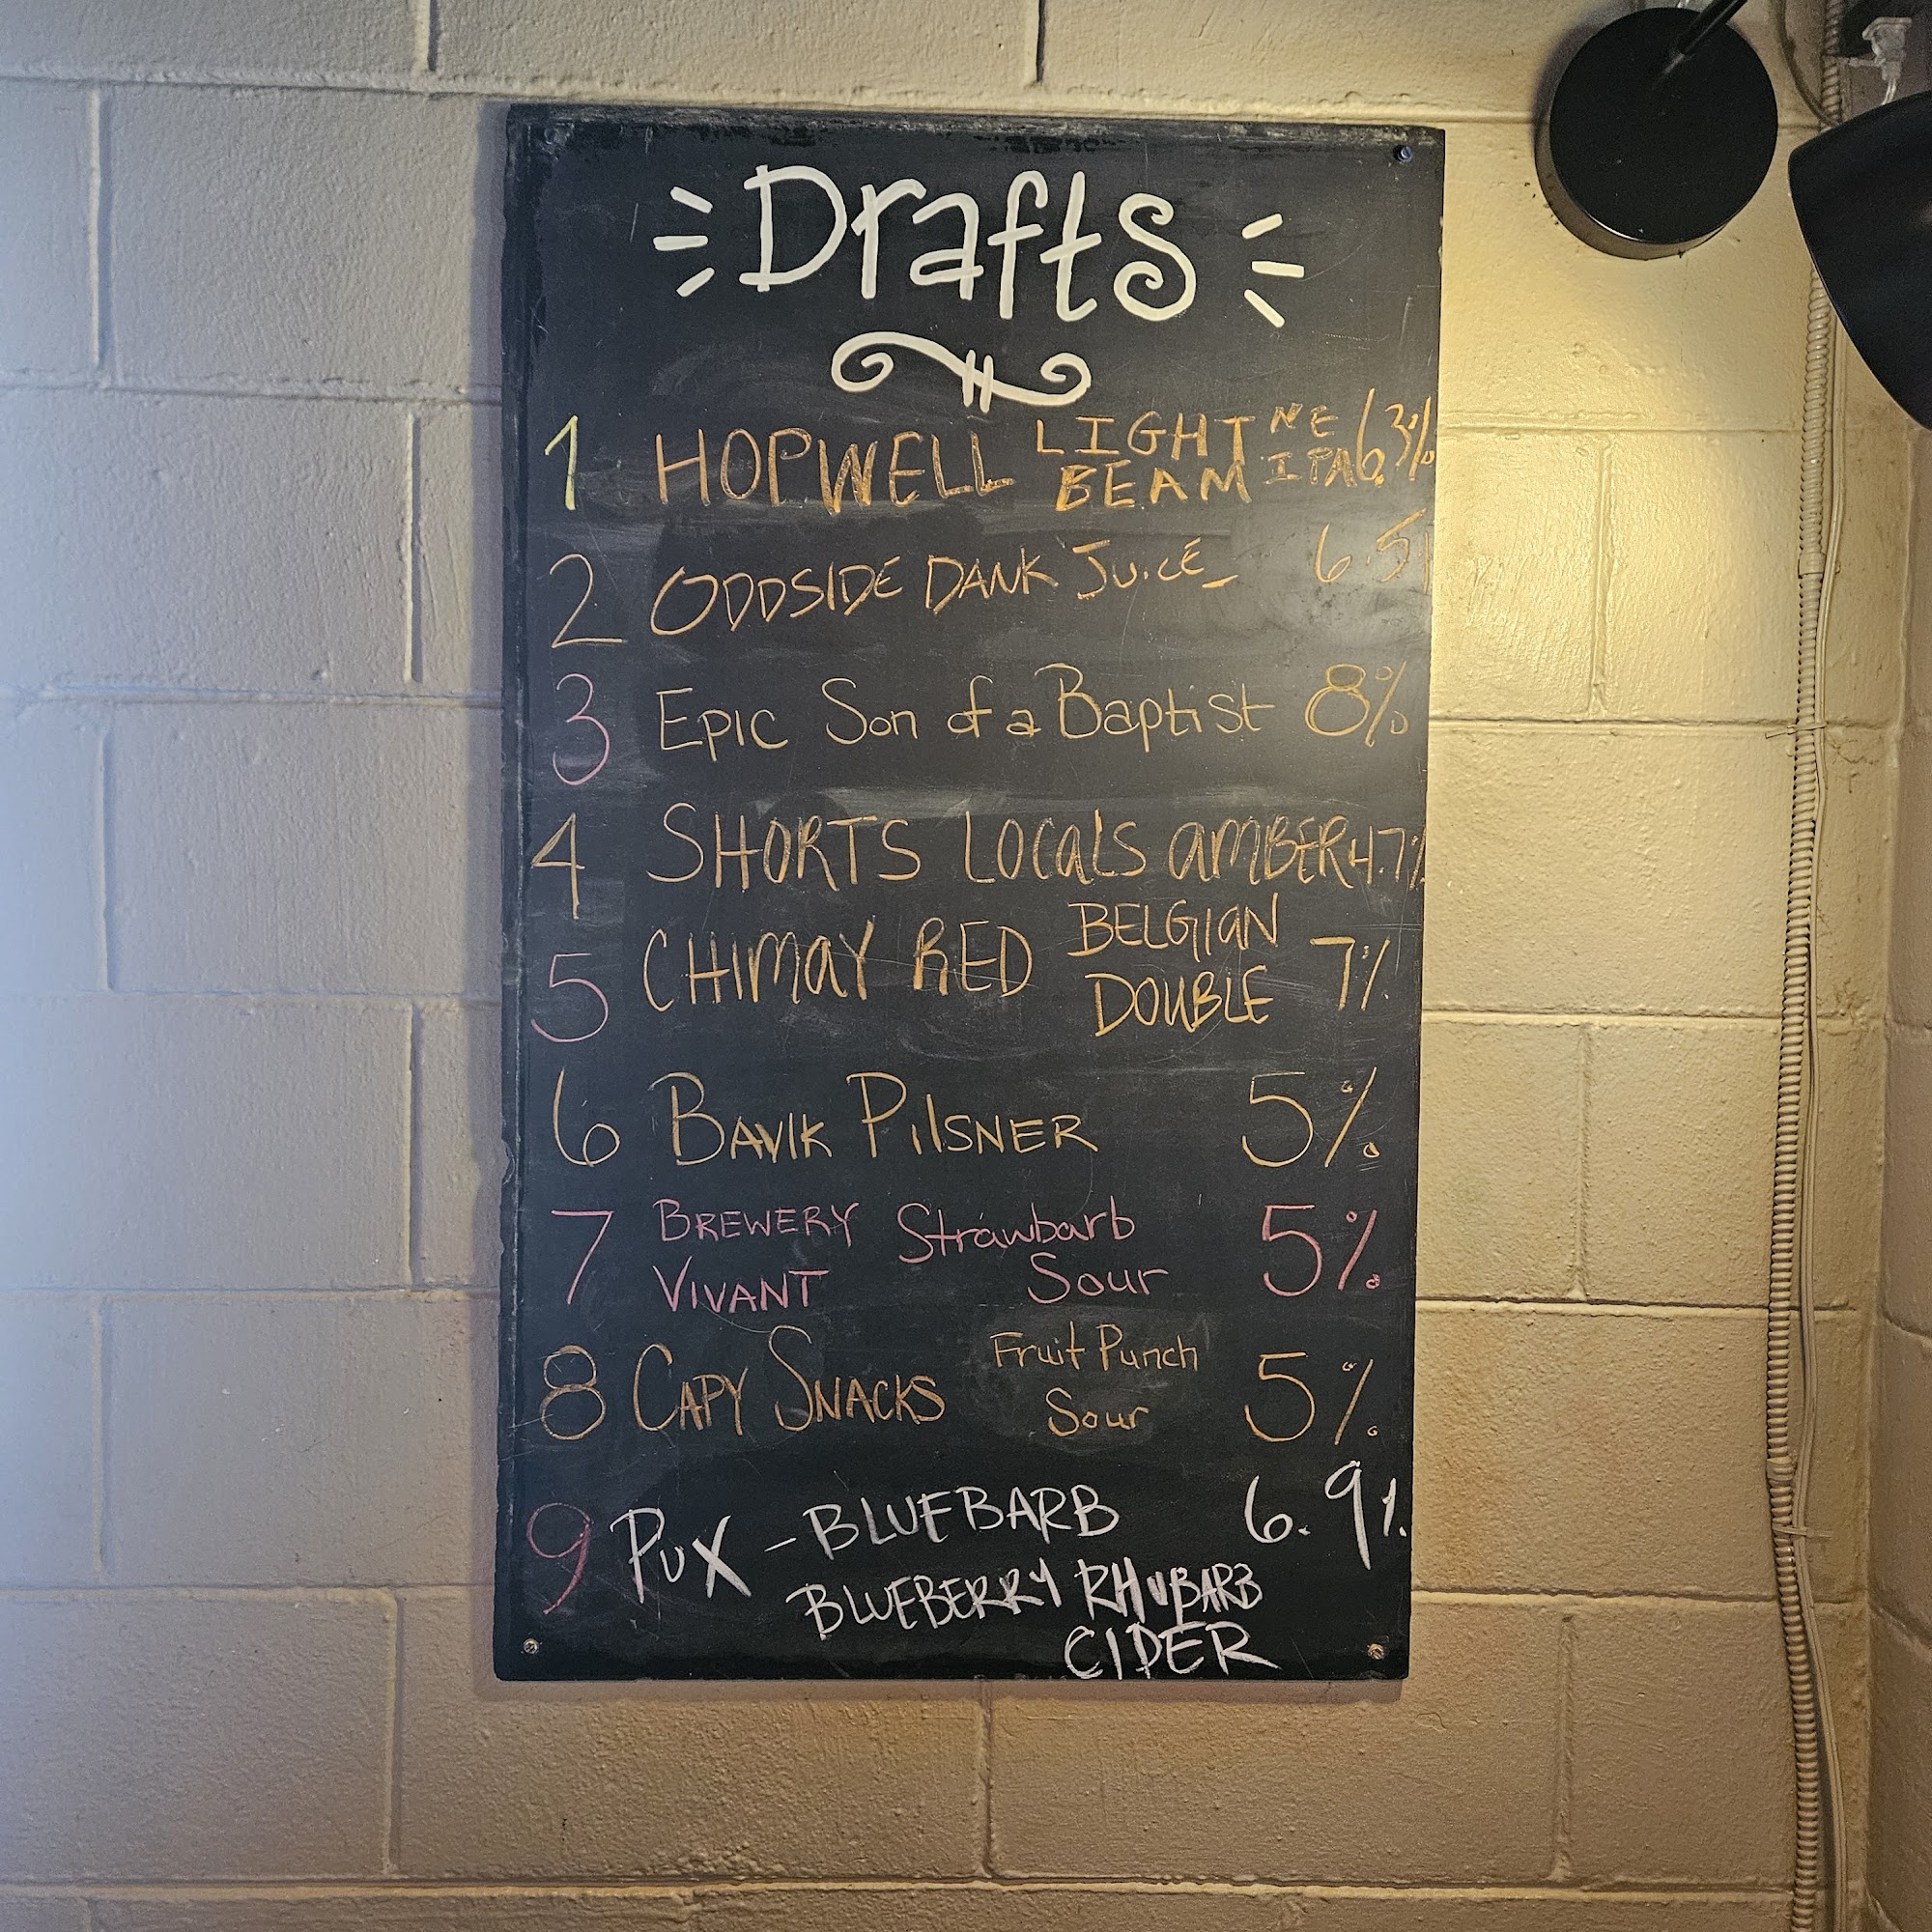 Drafts
1 HOPWELL LIGHT BEAM NE IPA 6.3%
2 ODDSIDE DANK JUICE 6.5
3 Epic Son of a Baptist 8%
4 SHORTS LOCALS AMBER 4.7%
5 CHIMAY RED BELGIAN DOUBLE 7%
6 BAVIK PILSNER 5%
7 BREWERY VIVANT Strawbarb Sour 5%
8 CAPY SNACKS Fruit Punch Sour 5%
9 PUX - BLUEBARB 6.9%
BLUEBERRY RHUBARB
CIDER